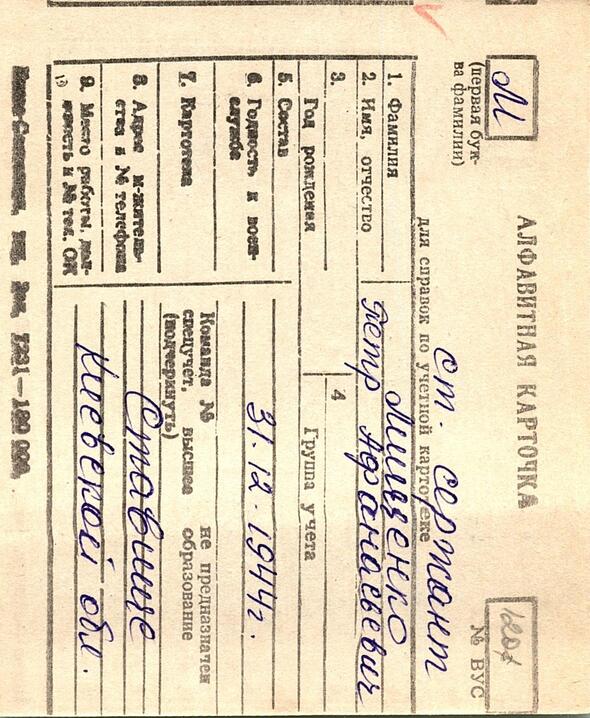 М
АЛФАВИТНАЯ КАРТОЧКА
1207
(первая бук-
ва фамилии)
№ ВУС
ст. сержант
для справок по учетной картотеке
1. Фамилия Мищенко
2. Имя, отчество Петр Афанасьевич
3.
Год рождения
4
Группа учета
5. Состав
6. Годность к воен-
службе
31.12.1944г.
7. Картотека
Команда № не предназначен
спецучет, высшее образование
(подчеркнуть)
8. Адрес м-житель-
ства и № телефона
Ставище
9. Место работы, дол-
жность и № тел. ОК
Киевской обл.